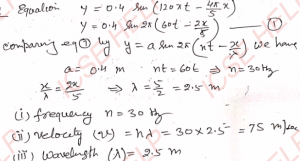 Equation y = 0.4 sin (120πt - 4π/5 x)
y = 0.4 sin 2π (60t - 2x/5) — ①
comparing eq ① by y = a sin 2π (nt - x/λ) we have
a = 0.4 m nt = 60t ⇒ n = 30 Hz
x/λ = 2x/5 ⇒ λ = 5/2 = 2.5 m
(i) frequency n = 30 Hz
(ii) velocity (v) = nλ = 30 × 2.5 = 75 m/sec
(iii) wavelength (λ) = 2.5 m